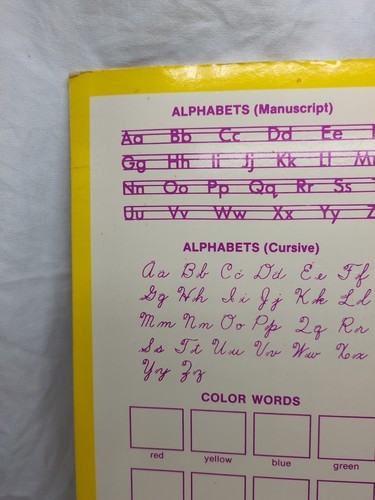 ALPHABETS (Manuscript)
Aa Bb Cc Dd Ee
Gg Hh Ii Jj Kk Ll M
Nn Oo Pp Qq Rr Ss
Uu Vv Ww Xx Yy Z
ALPHABETS (Cursive)
Aa Bb Cc Dd Ee Ff
Gg Hh Ii Jj Kk Ll
Mm Nn Oo Pp Qq Rr
Ss Tt Uu Vv Ww Xx
Yy Zz
COLOR WORDS
red yellow blue green